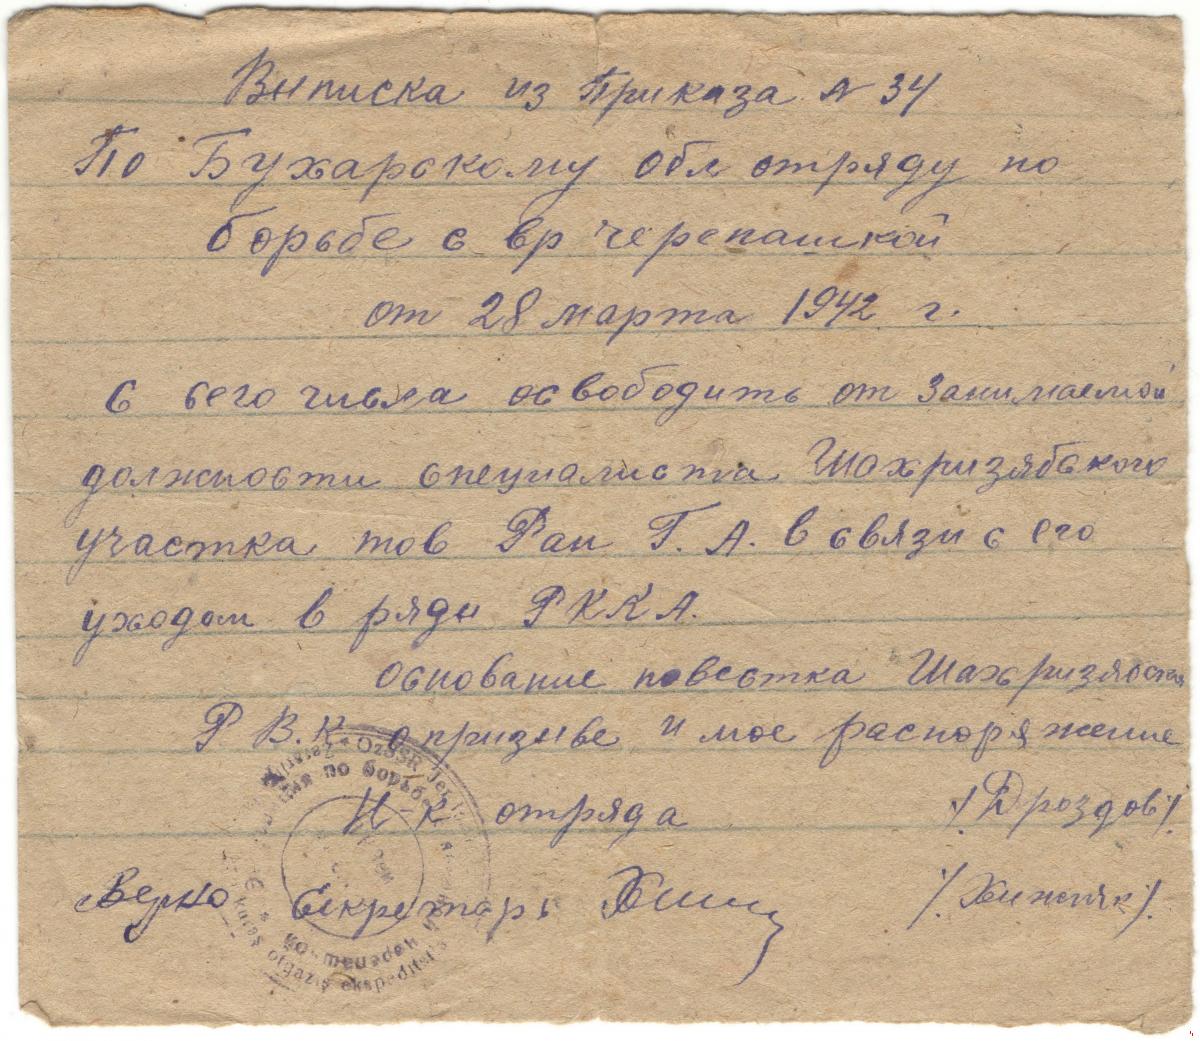 Выписка из Приказа № 34
По Бухарскому обл отряду по
борьбе с вр черепашкой
от 28 марта 1942 г.
С сего числа освободить от занимаемой
должности специалиста Шахризябского
участка тов Ран Г. А. в связи с его
уходом в ряды РККА.
Основание повестка Шахризябская
Р В.К о призыве и мое распоряжение
Н-к отряда /Дроздов/.
Верно Секретарь /Хижняк/.
OzSSR
по борьбе
черепаш-ой
ekspeditsi